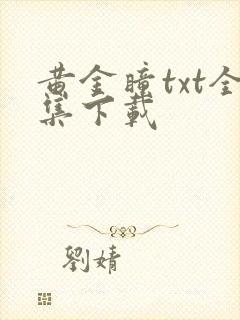 黄金瞳txt全
集下载
劉婧